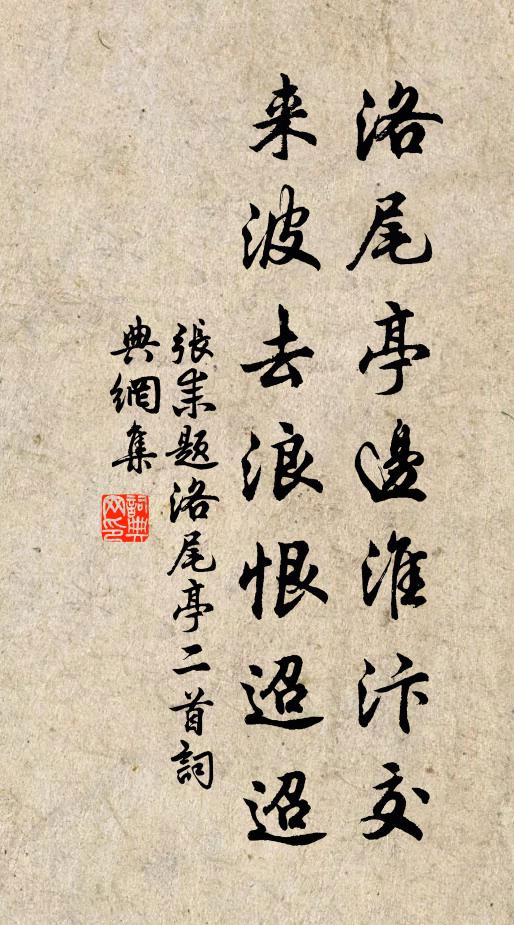 洛尾亭邊淮汴交
来波去浪恨迢迢
張耒題洛尾亭二首詞
典網集
詞典網印